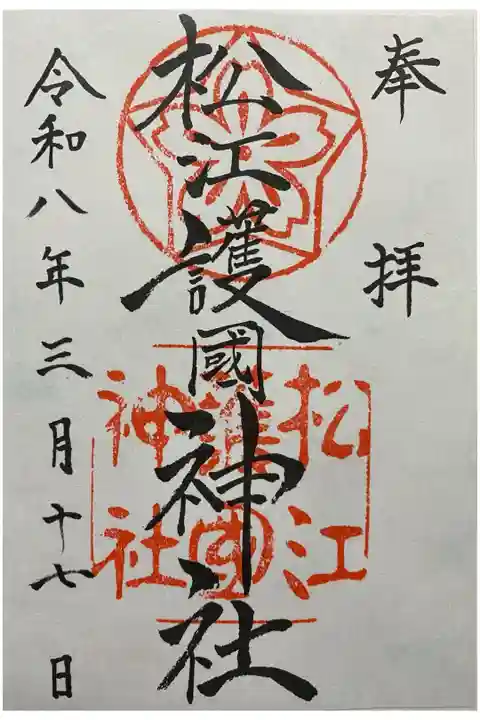 奉拝
松江護國神社
松江
護國
神社
令和八年三月十七日